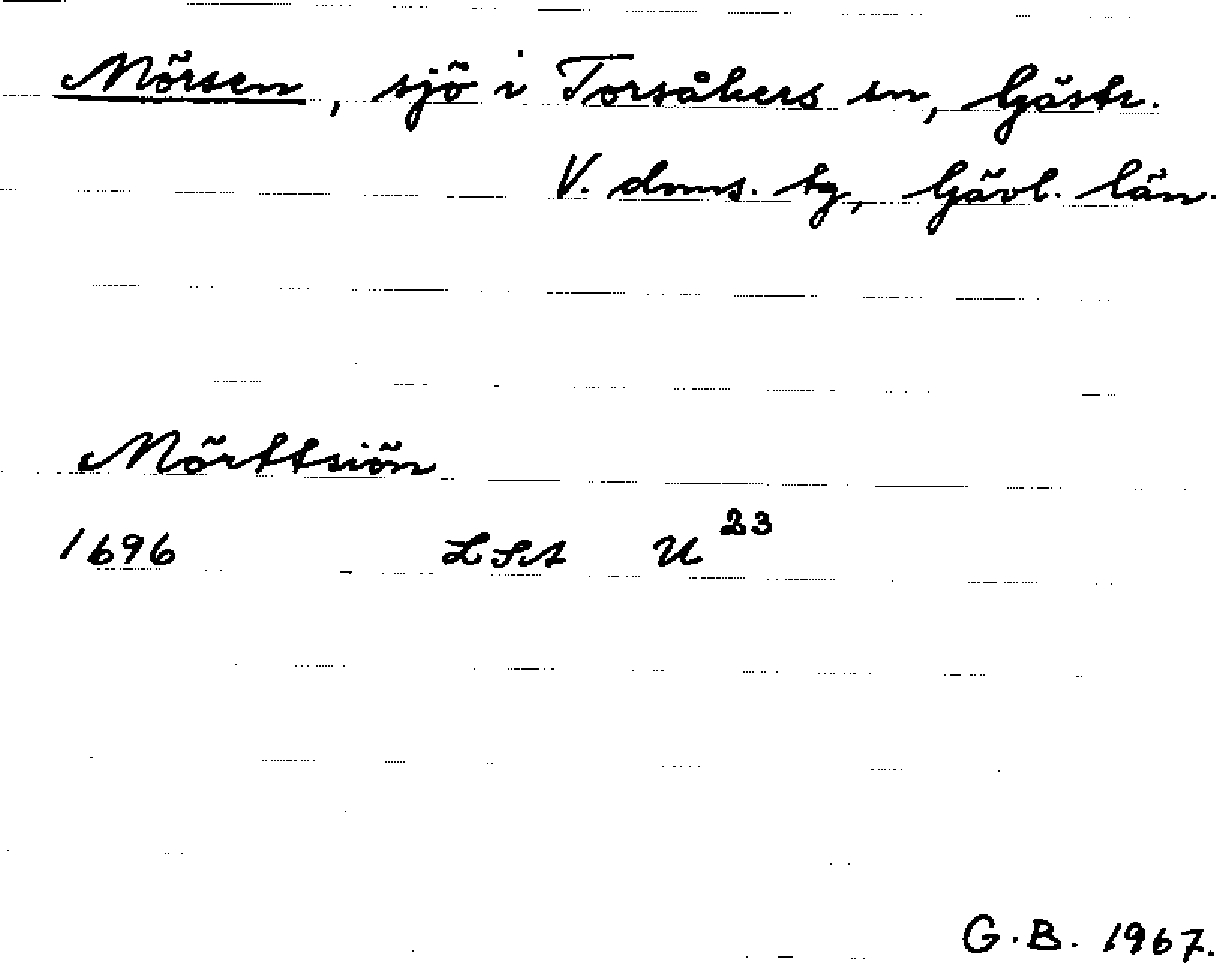 Mörsen, sjö i Torsåkers sn, Gästr.
V. doms. tg, Gävl. län.
Mörttsiön
1696 LSA U 23
G.B. 1967.